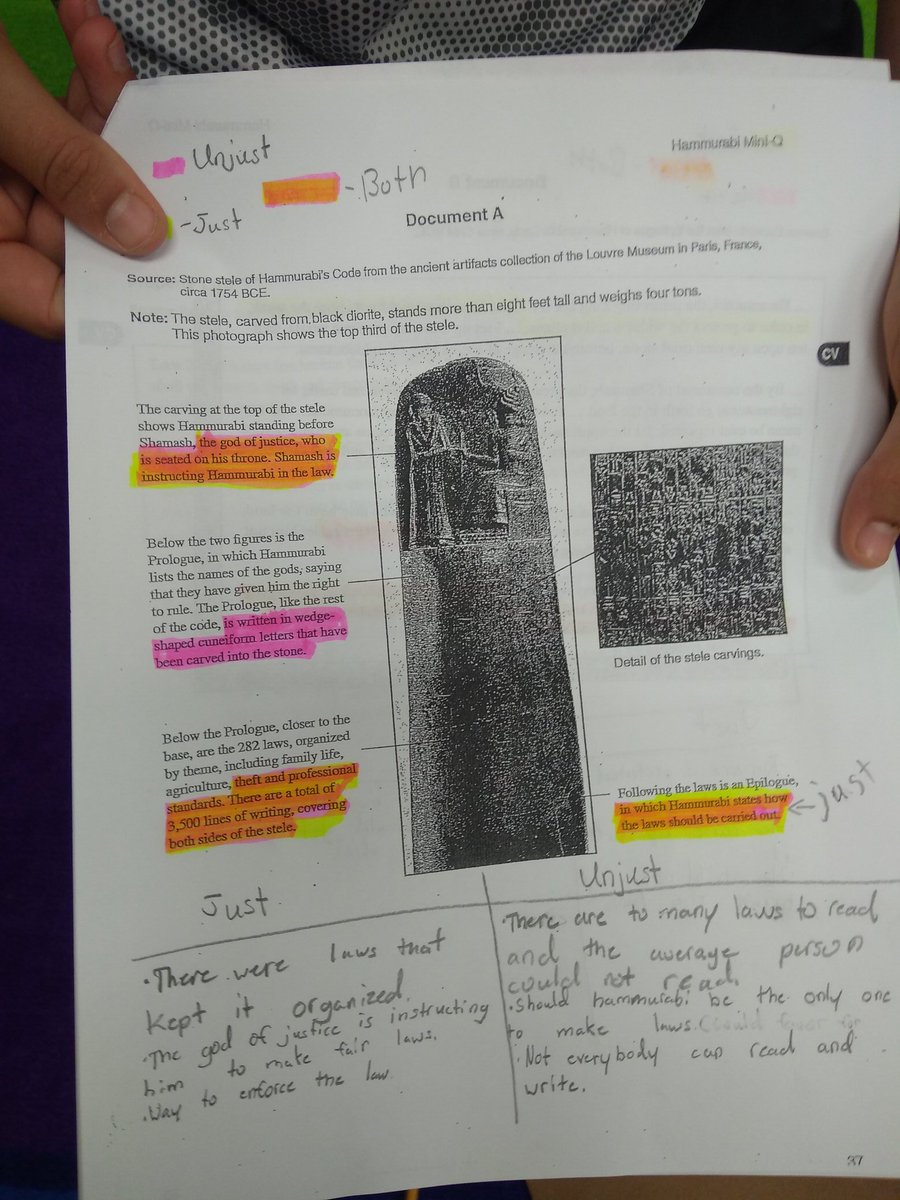 Hammurabi Mini-Q
Unjust
-Both
-Just
Document A
Source: Stone stele of Hammurabi's Code from the ancient artifacts collection of the Louvre Museum in Paris, France,
circa 1754 BCE.
Note: The stele, carved from black diorite, stands more than eight feet tall and weighs four tons.
This photograph shows the top third of the stele.
CV
The carving at the top of the stele
shows Hammurabi standing before
Shamash, the god of justice, who
is seated on his throne. Shamash is
instructing Hammurabi in the law.
Below the two figures is the
Prologue, in which Hammurabi
lists the names of the gods, saying
that they have given him the right
to rule. The Prologue, like the rest
of the code, is written in wedge-
shaped cuneiform letters that have
been carved into the stone.
Detail of the stele carvings.
Below the Prologue, closer to the
base, are the 282 laws, organized
by theme, including family life,
agriculture, theft and professional
standards. There are a total of
3,500 lines of writing, covering
both sides of the stele.
Following the laws is an Epilogue,
in which Hammurabi states how
the laws should be carried out.
just
Just
·There were laws that
kept it organized.
·The god of justice is instructing
him to make fair laws.
·Way to enforce the law
Unjust
·There are to many laws to read
and the average person
could not read.
·Should hammurabi be the only one
to make laws
·Not everybody can read and
write.
37